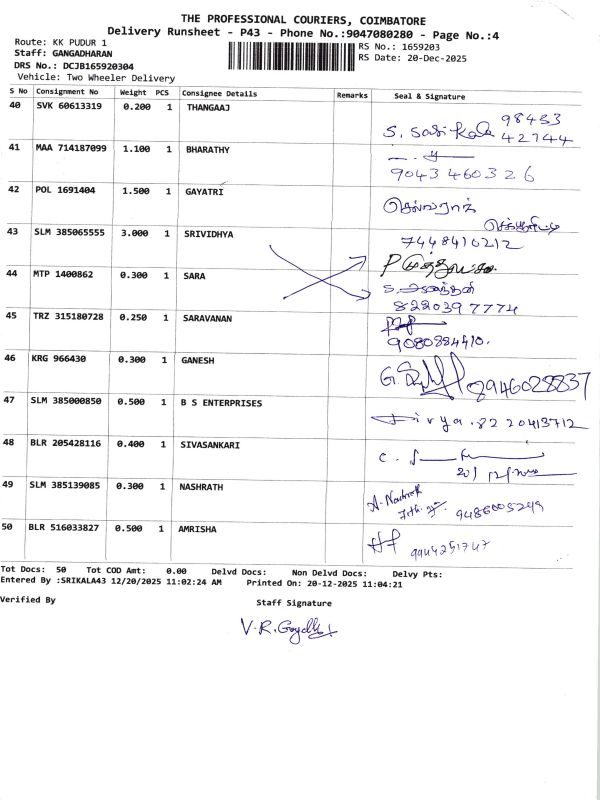 THE PROFESSIONAL COURIERS, COIMBATORE
Delivery Runsheet - P43 - Phone No.:9047080280 - Page No.:4
Route: KK PUDUR 1
RS No.: 1659203
Staff: GANGADHARAN
RS Date: 20-Dec-2025
DRS No.: DCJB165920304
Vehicle: Two Wheeler Delivery
S No Consignment No Weight PCS Consignee Details Remarks Seal & Signature
40 SVK 60613319 0.200 1 THANGAAJ
98433
S. Sasikala 42744
41 MAA 714187099 1.100 1 BHARATHY
9043460326
42 POL 1691404 1.500 1 GAYATRI
செல்வராஜ்
43 SLM 385065555 3.000 1 SRIVIDHYA
7448410212
44 MTP 1400862 0.300 1 SARA
8220397774
45 TRZ 315180728 0.250 1 SARAVANAN
9080884410.
46 KRG 966430 0.300 1 GANESH
8946028837
47 SLM 385000850 0.500 1 B S ENTERPRISES
Divya. 8220413712
48 BLR 205428116 0.400 1 SIVASANKARI
49 SLM 385139085 0.300 1 NASHRATH
A. Nashrath
9486005249
50 BLR 516033827 0.500 1 AMRISHA
9944251747
Tot Docs: 50 Tot COD Amt: 0.00 Delvd Docs: Non Delvd Docs: Delvy Pts:
Entered By :SRIKALA43 12/20/2025 11:02:24 AM Printed On: 20-12-2025 11:04:21
Verified By
Staff Signature